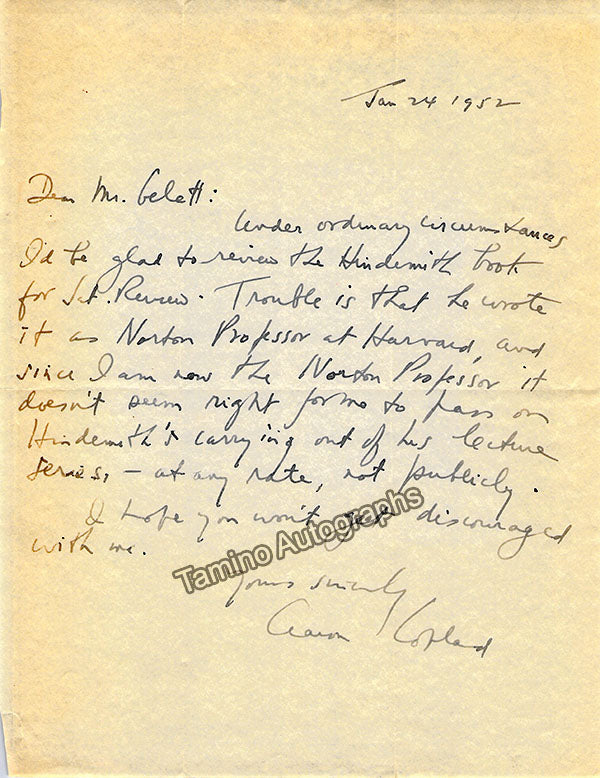 Jan 24 1952
Dear Mr. Gelatt:
Under ordinary circumstances
I'd be glad to review the Hindemith book
for Sat. Review. Trouble is that he wrote
it as Norton Professor at Harvard, and
since I am now the Norton Professor it
doesn't seem right for me to pass on
Hindemith's carrying out of his lecture
series, – at any rate, not publicly.
I hope you won't get discouraged
with me.
Tamino Autographs
Yours sincerely
Aaron Copland